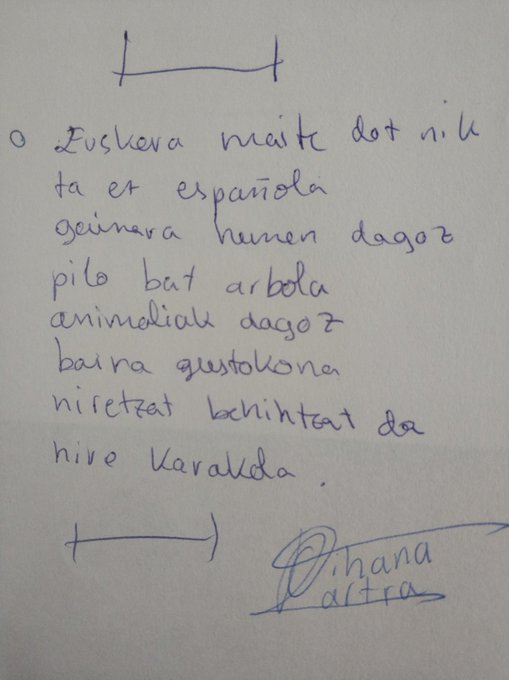 Euskera maite dot nik
ta ez española
geunera hemen dagoz
pilo bat arbola
animaliak dagoz
baina gustokona
niretzat behintzat da
nire Karakola.
Oihana
artra